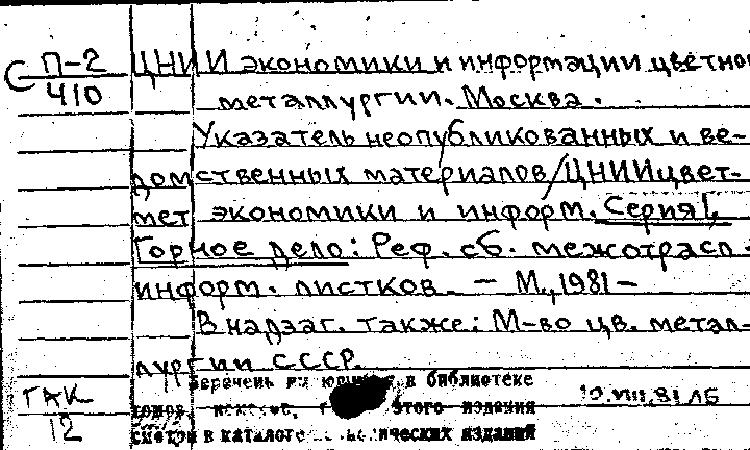 С П-2 ЦНИИ экономики и информации цветной
410 металлургии. Москва.
Указатель неопубликованных и ве-
домственных материалов/ЦНИИцвет-
мет экономики и информ. Серия I,
Горное дело: Реф. сб. межотрасл.
информ. листков. – М., 1981 –
В надзаг. также: М-во цв. метал-
лургии СССР.
ГАК Перечень в библиотеке
12 этого издания
смотри в каталоге изданий